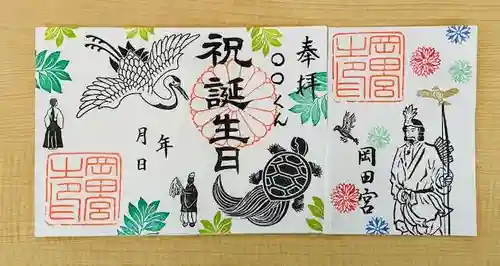 奉拝
〇〇くん
祝誕生日
年
月日
岡田宮
岡田宮